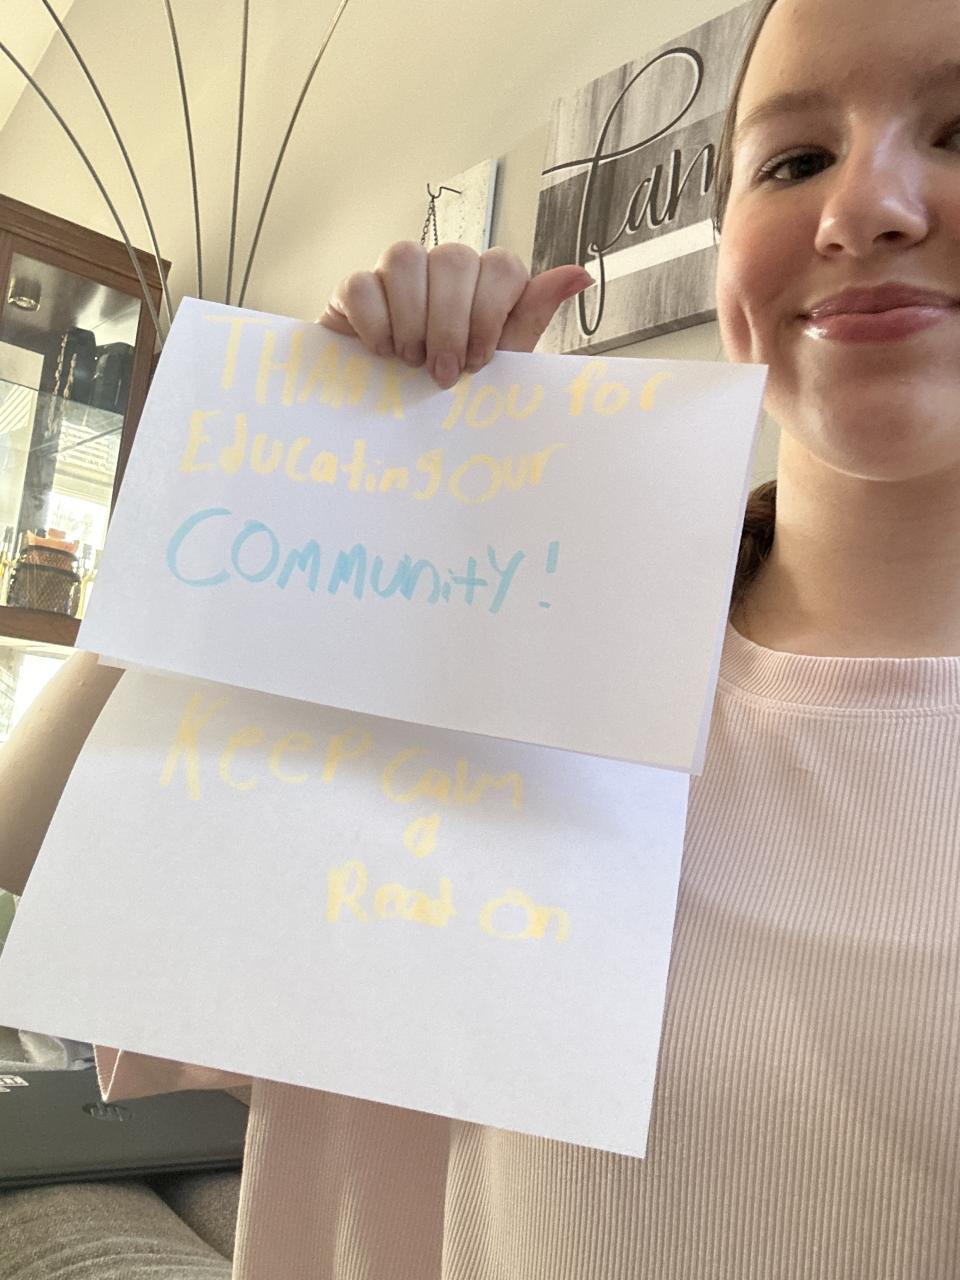 fam
THANK YOU for
Educating Our
COMMUnitY!
Keep Calm
&
Read On
hp